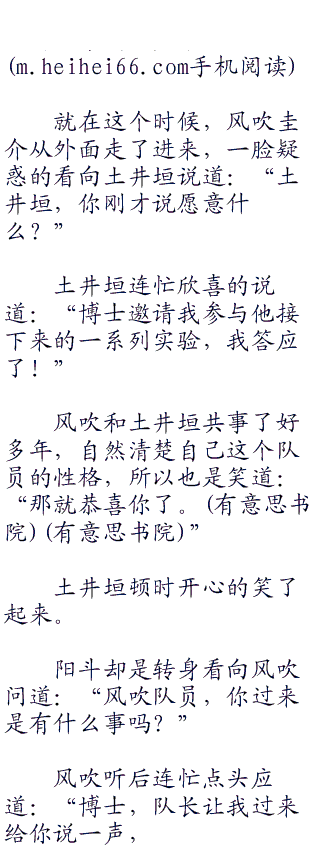 (m.heihei66.com手机阅读)
就在这个时候，风吹圭
介从外面走了进来，一脸疑
惑的看向土井垣说道：“土
井垣，你刚才说愿意什
么？”
土井垣连忙欣喜的说
道：“博士邀请我参与他接
下来的一系列实验，我答应
了！”
风吹和土井垣共事了好
多年，自然清楚自己这个队
员的性格，所以也是笑道：
“那就恭喜你了。(有意思书
院)(有意思书院)”
土井垣顿时开心的笑了
起来。
阳斗却是转身看向风吹
问道：“风吹队员，你过来
是有什么事吗？”
风吹听后连忙点头应
道：“博士，队长让我过来
给你说一声，